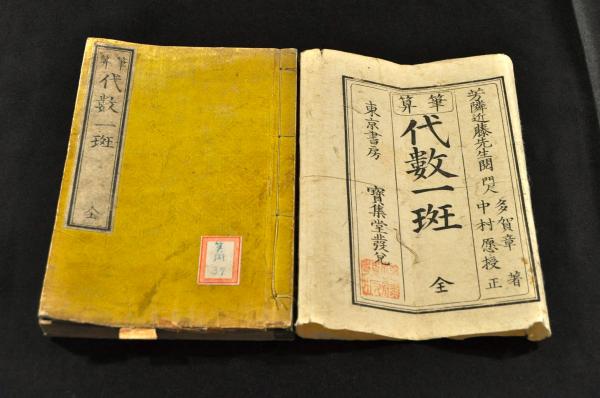 筆算
代數一斑
全
算術
37
芳隣近藤先生閲 門人 多賀章 中村愿授 著 正
筆算
代數一斑
全
東京書房 寶集堂發兌